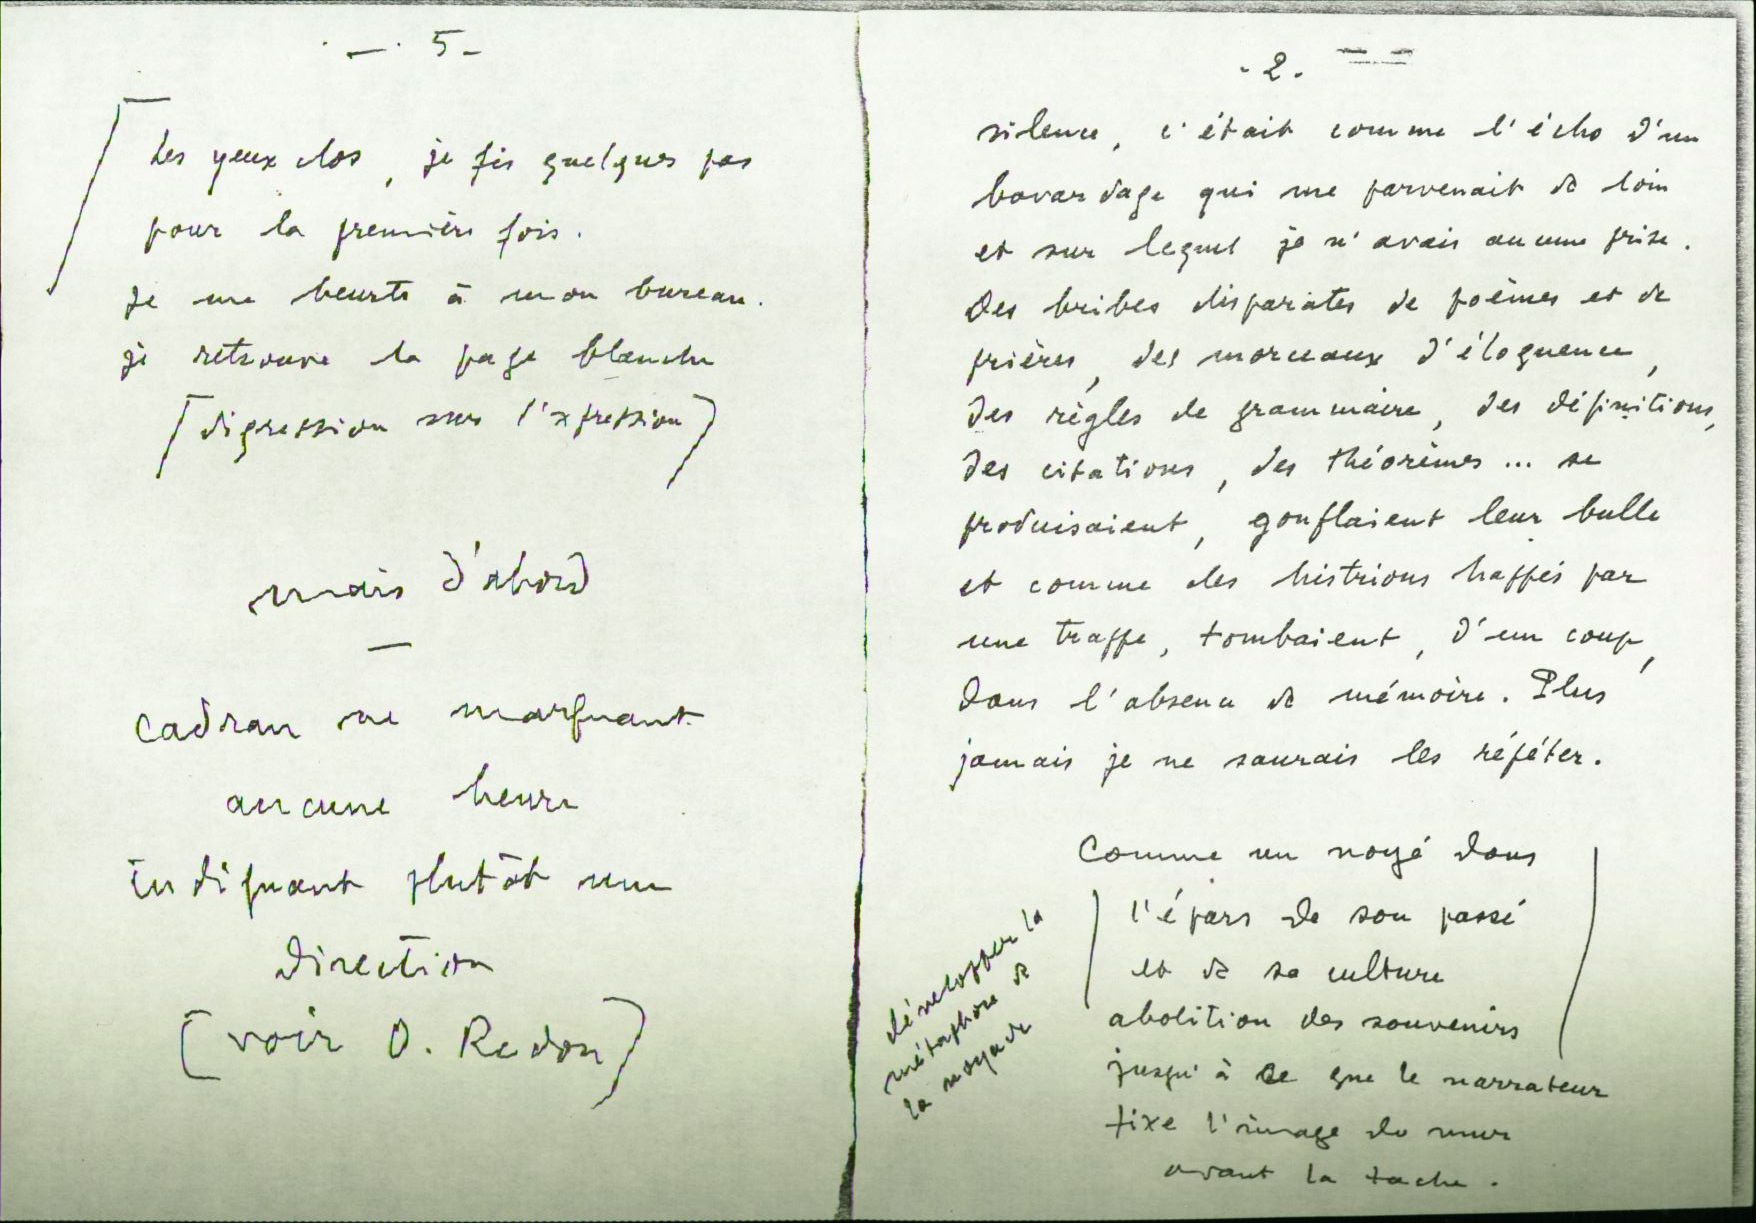 — 5 -
Les yeux clos, je fis quelques pas
pour la première fois.
Je me heurte à mon bureau.
je retrouve la page blanche
[digression sur l'expression]
mais d'abord
—
cadran ne marquant
aucune heure
indiquant plutôt une
direction
[voir O. Redon]
- 2 -
silence, c'était comme l'écho d'un
bavardage qui me parvenait de loin
et sur lequel je n'avais aucune prise.
Des bribes disparates de poèmes et de
prières, des morceaux d'éloquence,
des règles de grammaire, des définitions,
des citations, des théorèmes... se
produisaient, gonflaient leur bulle
et comme des histrions happés par
une trappe, tombaient, d'un coup,
dans l'absence de mémoire. Plus
jamais je ne saurais les répéter.
Comme un noyé dans
l'épars de son passé
et de sa culture
abolition des souvenirs
jusqu'à ce que le narrateur
fixe l'image du mur
avant la tache.
développer la
métaphore de
la noyade